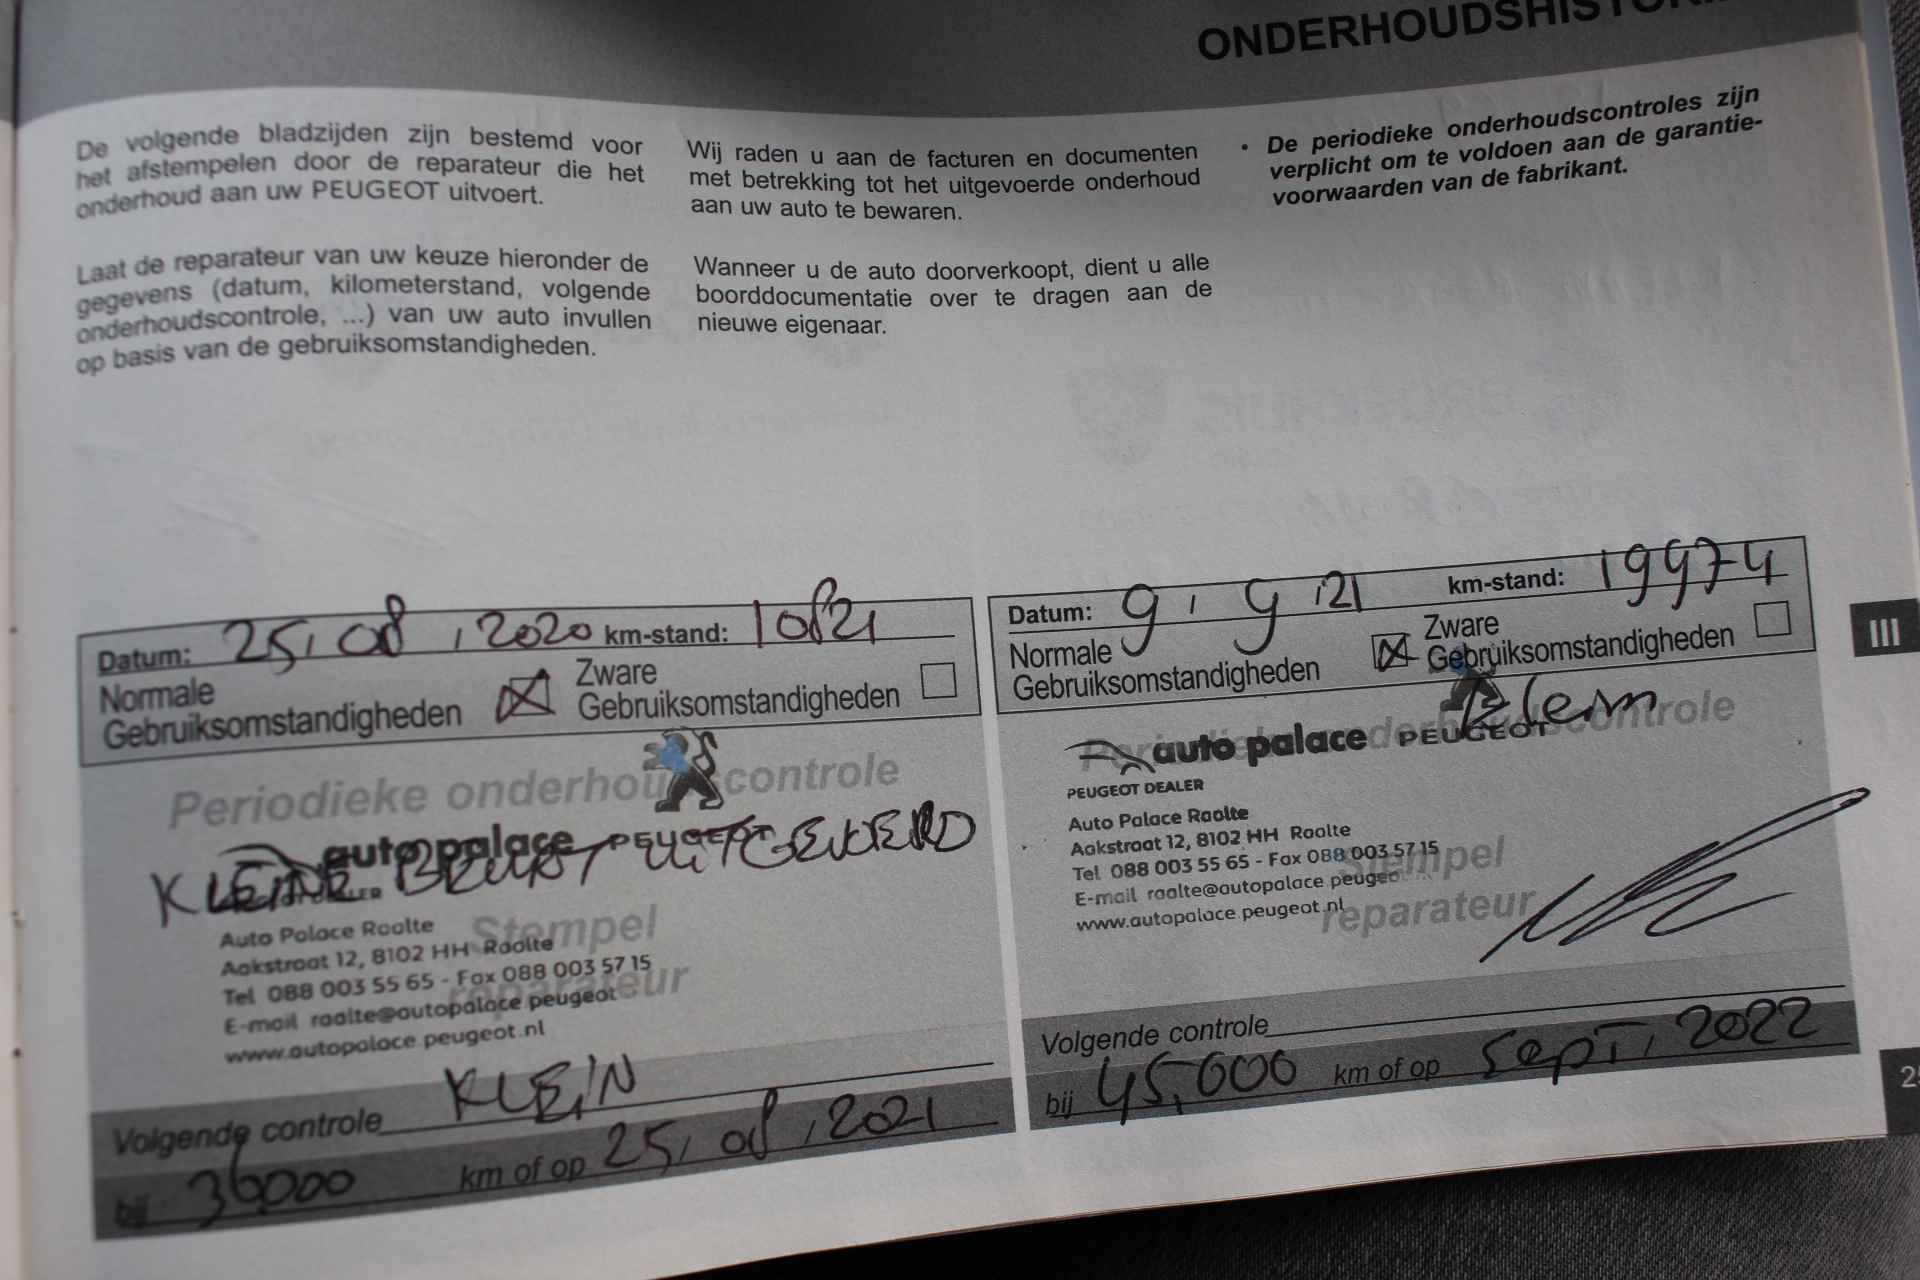 ONDERHOUDSHISTORI
De volgende bladzijden zijn bestemd voor
het afstempelen door de reparateur die het
onderhoud aan uw PEUGEOT uitvoert.
Laat de reparateur van uw keuze hieronder de
gegevens (datum, kilometerstand, volgende
onderhoudscontrole, ...) van uw auto invullen
op basis van de gebruiksomstandigheden.
Wij raden u aan de facturen en documenten
met betrekking tot het uitgevoerde onderhoud
aan uw auto te bewaren.
Wanneer u de auto doorverkoopt, dient u alle
boorddocumentatie over te dragen aan de
nieuwe eigenaar.
• De periodieke onderhoudscontroles zijn
verplicht om te voldoen aan de garantie-
voorwaarden van de fabrikant.
Datum: 25, 08, 2020 km-stand: 10821
Normale
Gebruiksomstandigheden
Zware
Gebruiksomstandigheden
Periodieke onderhoudscontrole
auto palace PEUGEOT
KLEINE BEURT UITGEVOERD
Auto Palace Raalte
Stempel
Aakstraat 12, 8102 HH Raalte
Tel 088 003 55 65 - Fax 088 003 57 15
reparateur
E-mail raalte@autopalace.peugeot
www.autopalace.peugeot.nl
Volgende controle KLEIN
bij 36000 km of op 25, 08, 2021
Datum: 9, 9, 21 km-stand: 19974
Normale
Gebruiksomstandigheden
Zware
Gebruiksomstandigheden
Periodieke onderhoudscontrole
auto palace PEUGEOT
PEUGEOT DEALER
Auto Palace Raalte
Aakstraat 12, 8102 HH Raalte
Tel 088 003 55 65 - Fax 088 003 57 15
Stempel
E-mail raalte@autopalace.peugeo
www.autopalace.peugeot.nl
reparateur
Volgende controle
bij 45.000 km of op sept, 2022
III